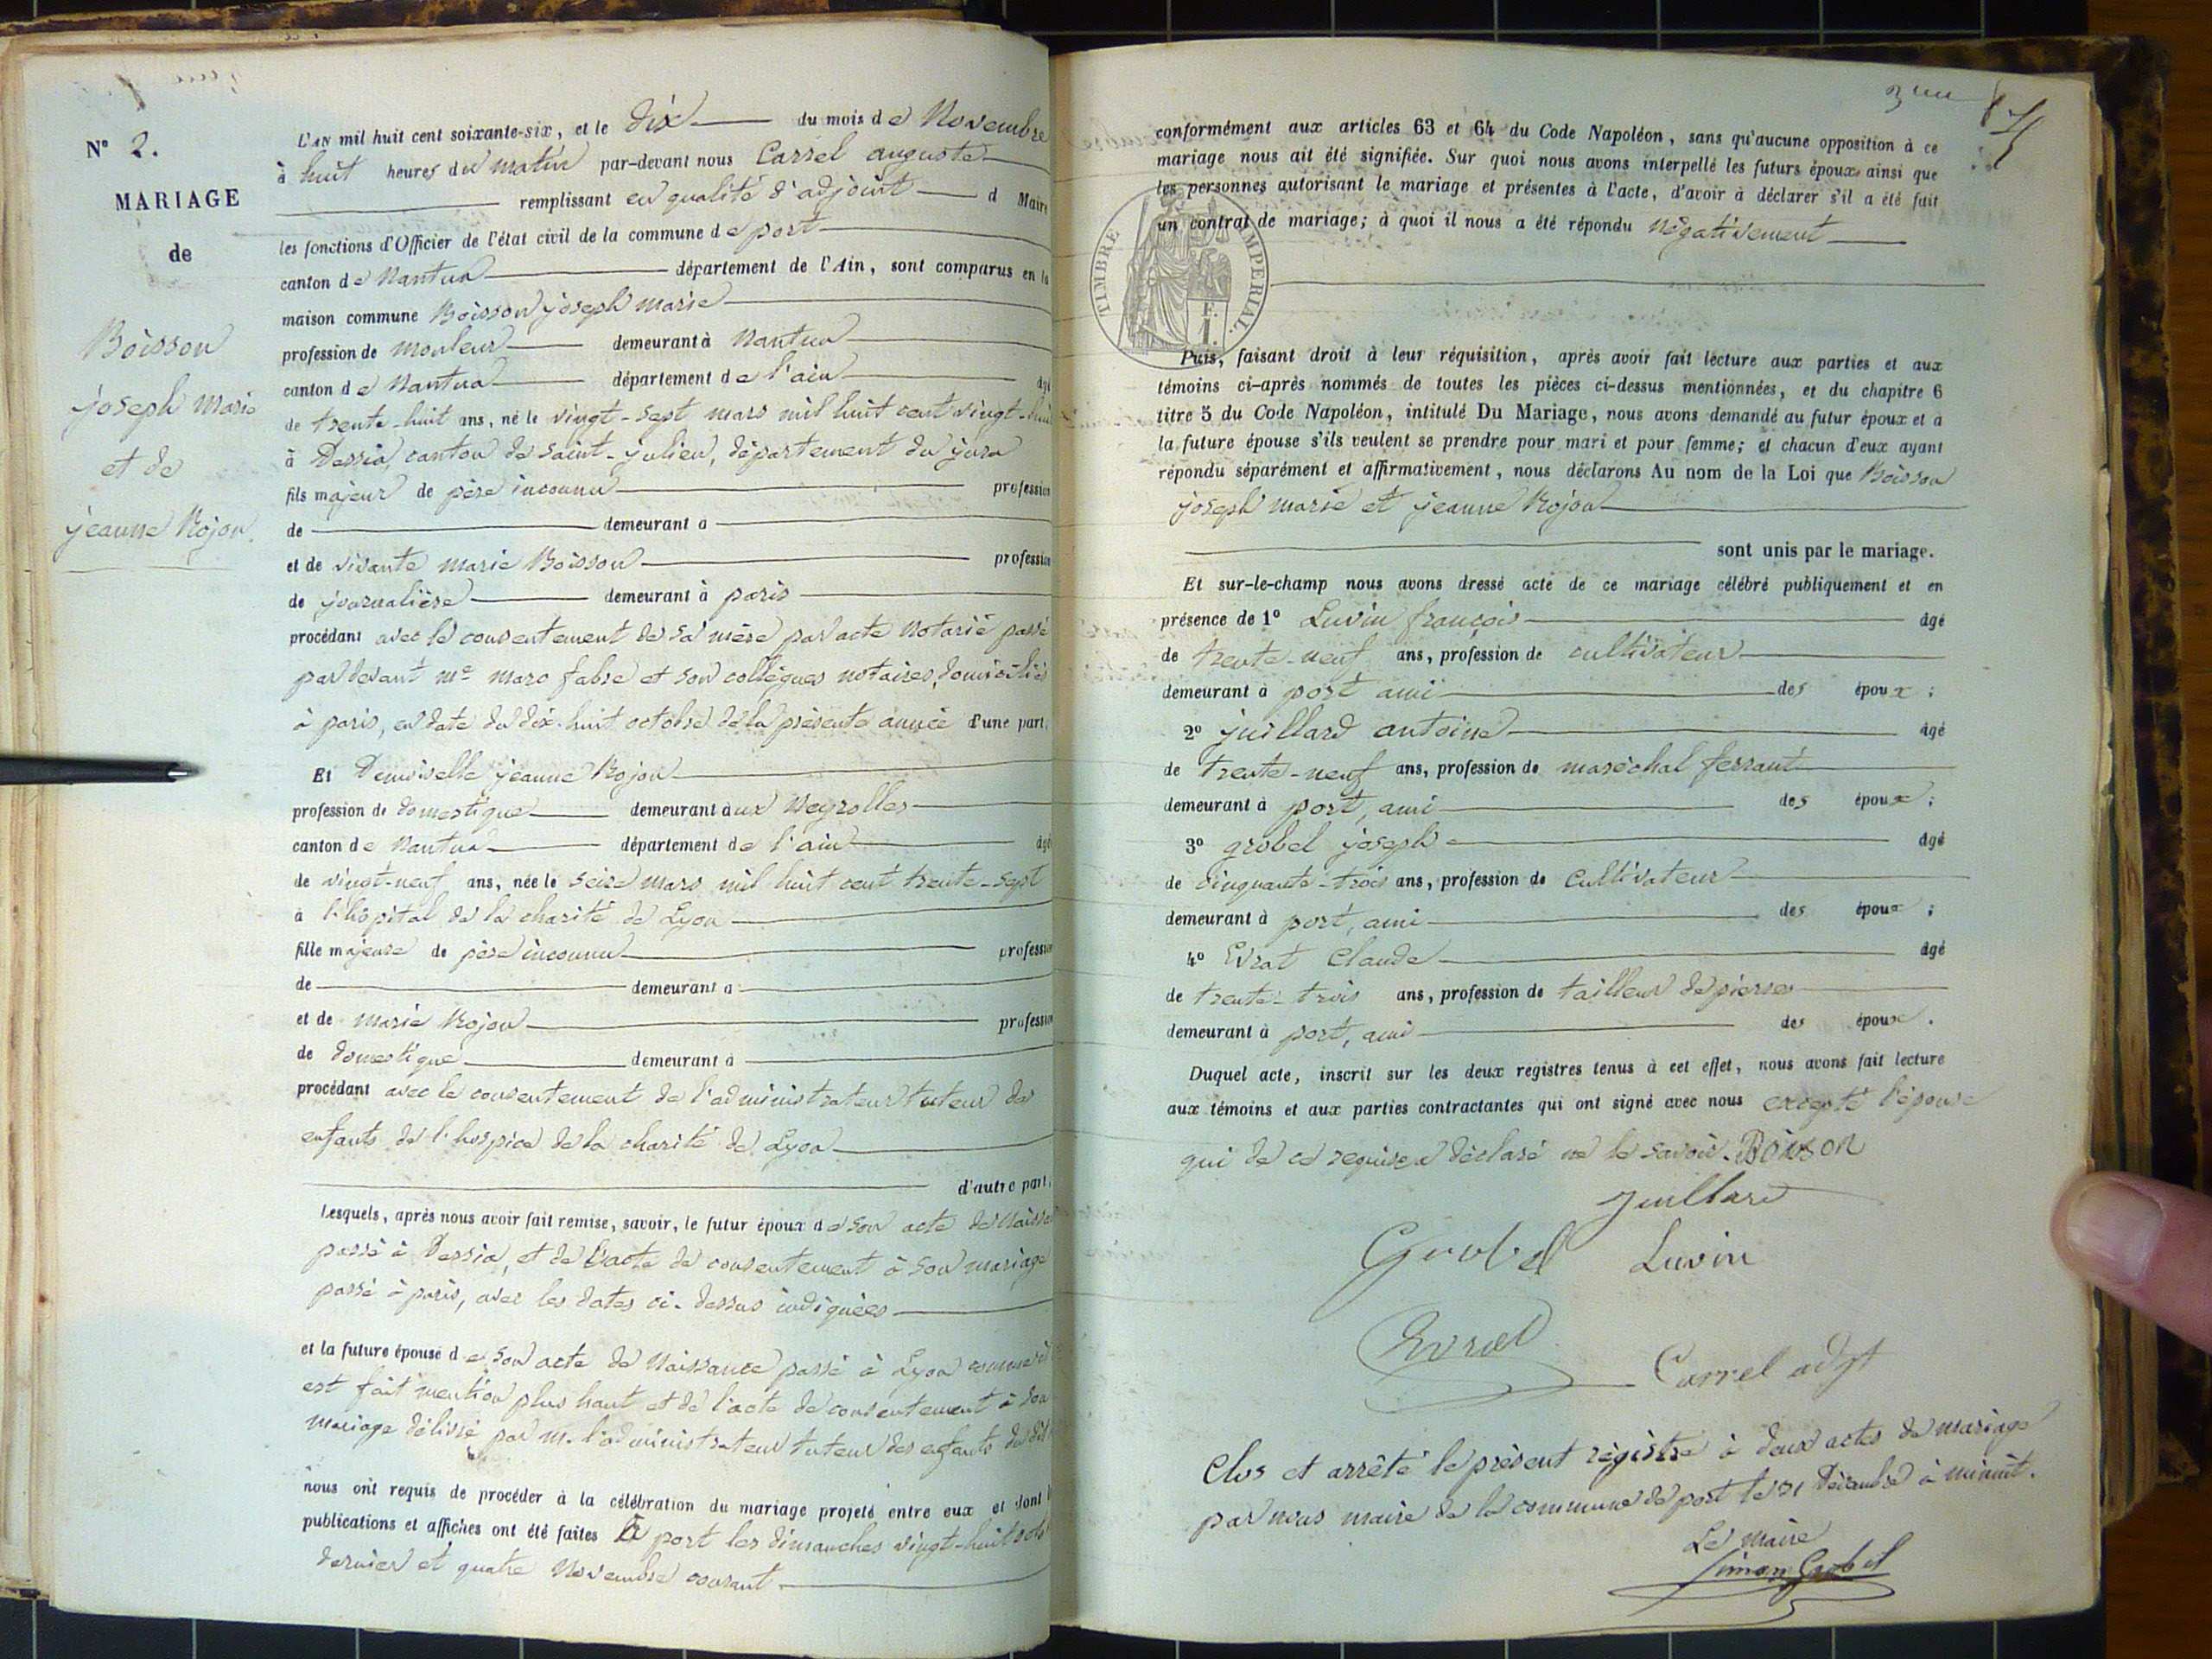 N° 2.
MARIAGE
de
Boisson
joseph Marie
et de
jeanne Rojon.
L'AN mil huit cent soixante-six, et le dix du mois de Novembre
à huit heures du matin par-devant nous Carrel auguste
remplissant en qualité d'adjoint d Maire
les fonctions d'Officier de l'état civil de la commune de port
canton de Nantua département de l'Ain, sont comparus en la
maison commune Boisson joseph marie
profession de mouleur demeurant à Nantua
canton de Nantua département de l'ain âgé
de trente-huit ans, né le vingt-sept mars mil huit cent vingt-huit
à Dessia, canton de saint-julien, département du jura
fils majeur de père inconnu profession
de demeurant à
et de vivante marie Boisson profession
de journalière demeurant à paris
procédant avec le consentement de sa mère par acte Notarié passé
par devant me marc fabre et son collègues notaires, domiciliés
à paris, en date du dix-huit octobre de la présente année d'une part,
Et Demoiselle jeanne Rojon
profession de domestique demeurant aux Neyrolles
canton de Nantua département de l'ain âgé
de vingt-neuf ans, née le seize mars mil huit cent trente-sept
à l'hôpital de la charité de Lyon
fille majeure de père inconnu profession
de demeurant à
et de marie Rojon profession
de domestique demeurant à
procédant avec le consentement de l'administrateur tuteur des
enfants de l'hospice de la charité de Lyon
d'autre part.
Lesquels, après nous avoir fait remise, savoir, le futur époux de son acte de Naissa
passé à Dessia, et de l'acte de consentement à son mariage
passé à paris, avec les dates ci-dessus indiquées
et la future épouse de son acte de Naissance passé à Lyon comme il
est fait mention plus haut et de l'acte de consentement à son
mariage délivré par m. l'administrateur tuteur des enfants du dit
nous ont requis de procéder à la célébration du mariage projeté entre eux et dont l
publications et affiches ont été faites à port les dimanches vingt-huit octo
dernier et quatre Novembre courant
conformément aux articles 63 et 64 du Code Napoléon, sans qu'aucune opposition à ce
mariage nous ait été signifiée. Sur quoi nous avons interpellé les futurs époux ainsi que
les personnes autorisant le mariage et présentes à l'acte, d'avoir à déclarer s'il a été fait
un contrat de mariage; à quoi il nous a été répondu négativement
TIMBRE IMPERIAL.
E.
1.
Puis, faisant droit à leur réquisition, après avoir fait lecture aux parties et aux
témoins ci-après nommés de toutes les pièces ci-dessus mentionnées, et du chapitre 6
titre 5 du Code Napoléon, intitulé Du Mariage, nous avons demandé au futur époux et à
la future épouse s'ils veulent se prendre pour mari et pour femme; et chacun d'eux ayant
répondu séparément et affirmativement, nous déclarons Au nom de la Loi que Boisson
joseph marie et jeanne Rojon
sont unis par le mariage.
Et sur-le-champ nous avons dressé acte de ce mariage célébré publiquement et en
présence de 1° Luvin françois âgé
de trente-neuf ans, profession de cultivateur
demeurant à port ami des époux;
2° juillard antoine âgé
de trente-neuf ans, profession de maréchal ferrant
demeurant à port, ami des époux;
3° grobel joseph âgé
de cinquante-trois ans, profession de cultivateur
demeurant à port, ami des époux;
4° Evrat Claude âgé
de trente-trois ans, profession de tailleur de pierres
demeurant à port, ami des époux.
Duquel acte, inscrit sur les deux registres tenus à cet effet, nous avons fait lecture
aux témoins et aux parties contractantes qui ont signé avec nous excepté l'épouse
qui de ce requise a déclaré ne le savoir. Boisson
Juillard
Grobel Luvin
Evrat
Carrel adjt
Clos et arrêté le présent régistre à deux actes de mariage
par nous maire de la commune de port le 31 Décembre à minuit.
Le maire
Simon Grobel